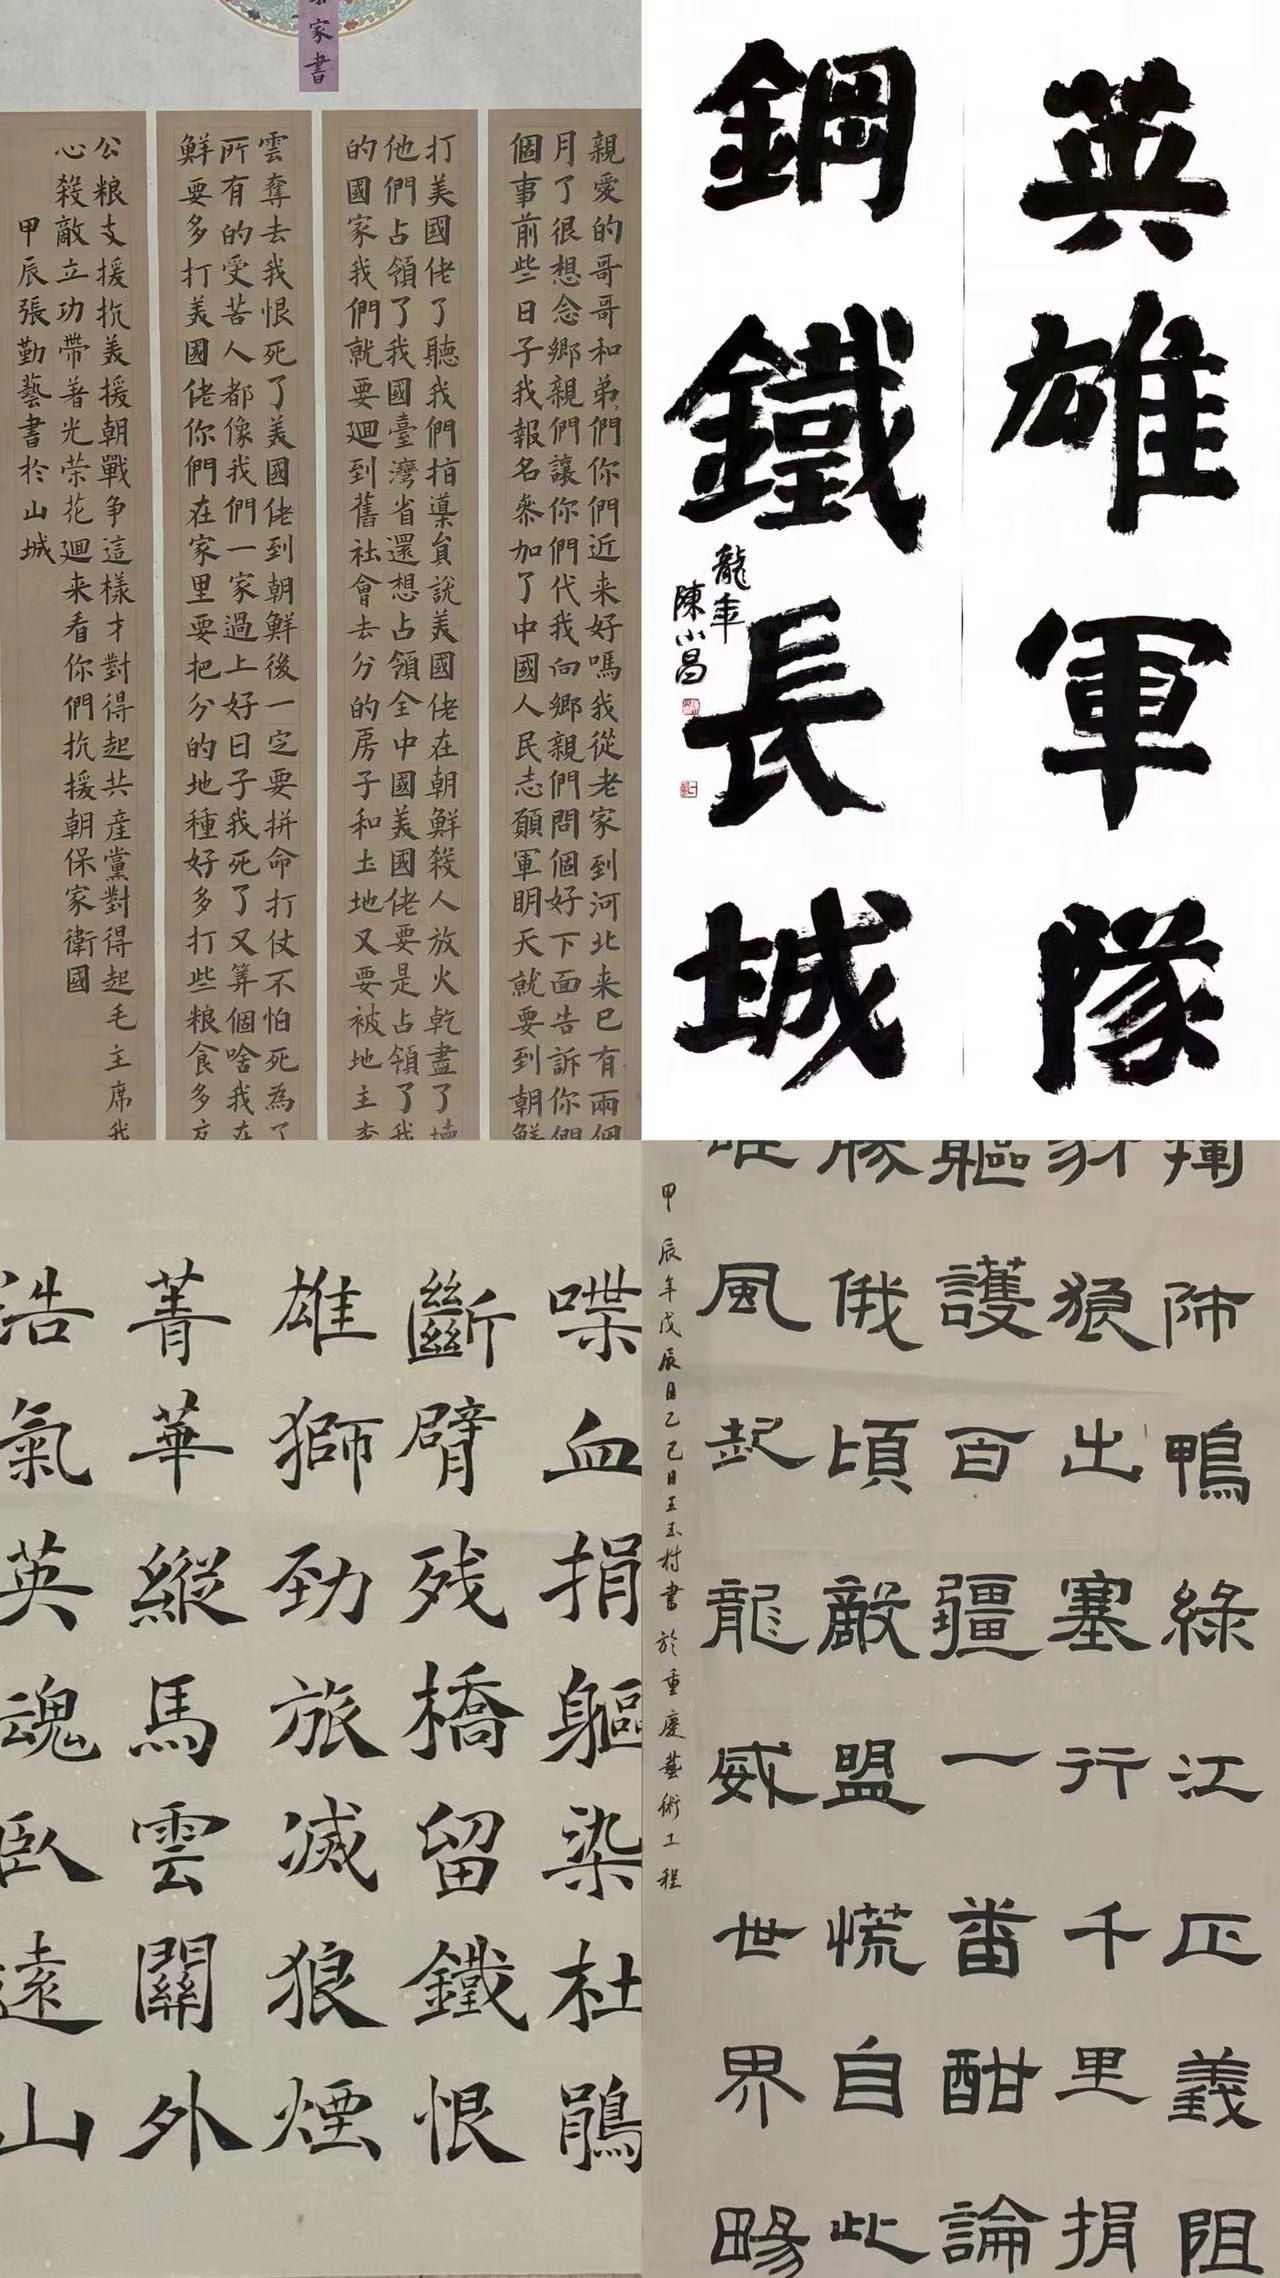 家書
親愛的哥哥和弟們你們近来好嗎我從老家到河北来已有兩個
月了很想念鄉親們讓你們代我向鄉親們問個好下面告訴你們
個事前些日子我報名參加了中國人民志願軍明天就要到朝鮮
打美國佬了聽我們指導員說美國佬在朝鮮殺人放火乾盡了壞
他們占領了我國臺灣省還想占領全中國美國佬要是占領了我
的國家我們就要廻到舊社會去分的房子和土地又要被地主李
雲奪去我恨死了美國佬到朝鮮後一定要拼命打仗不怕死為了
所有的受苦人都像我們一家過上好日子我死了又筭個啥我在
鮮要多打美國佬你們在家里要把分的地種好多打些粮食多交
公粮支援抗美援朝戰争這樣才對得起共産黨對得起毛主席我
心殺敵立功帶着光荣花廻来看你們抗援朝保家衛國
甲辰張勤藝書於山城
英雄軍隊
鋼鐵長城
龍年
陳小昌
喋血捐軀染杜鵑
斷臂残橋留鐵恨
雄獅劲旅滅狼煙
菁華縱馬雲關外
浩氣英魂臥遠山
揮師鴨綠江正義阻
豺狼出塞行千里捐
軀護百疆一番酣論
勝俄頃敵盟慌自此
雄風起龍威世界畼
甲辰年戊辰月乙巳日王玉村書於重慶藝術工程